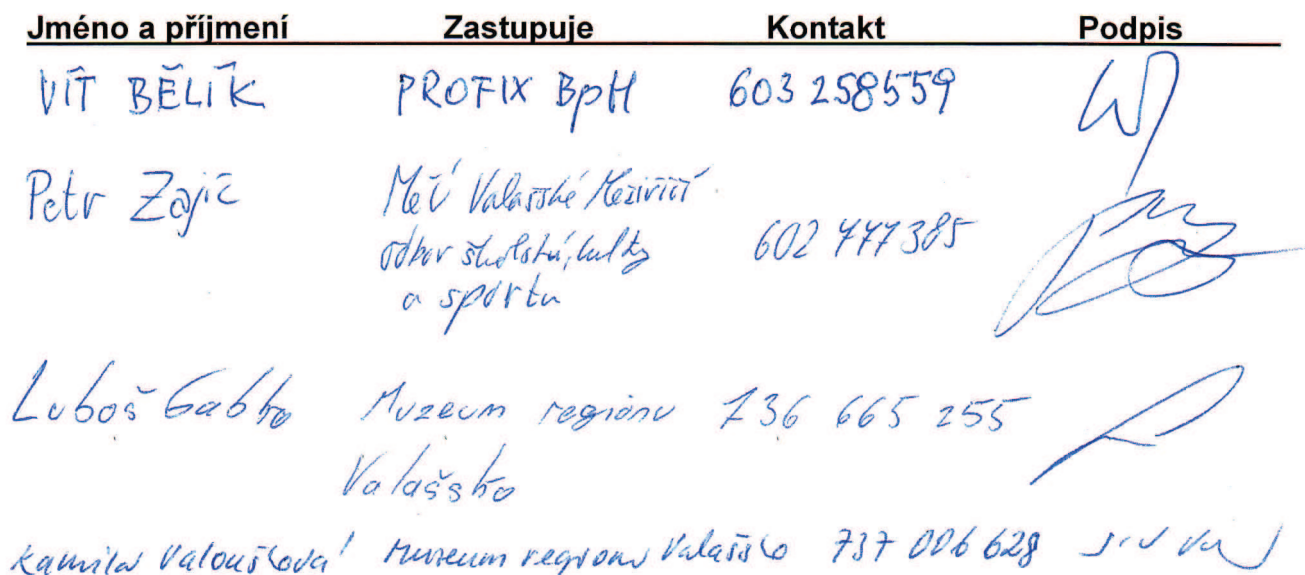 Jméno a příjmení Zastupuje Kontakt Podpis
VÍT BĚLÍK PROFIX BpH 603 258559
Petr Zajíc MěÚ Valašské Meziříčí
odbor školství, kultury 602 777385
a sportu
Luboš Gabko Muzeum regionu 736 665 255
Valašsko
Kamila Valoušková Muzeum regionu Valašsko 737 006 628